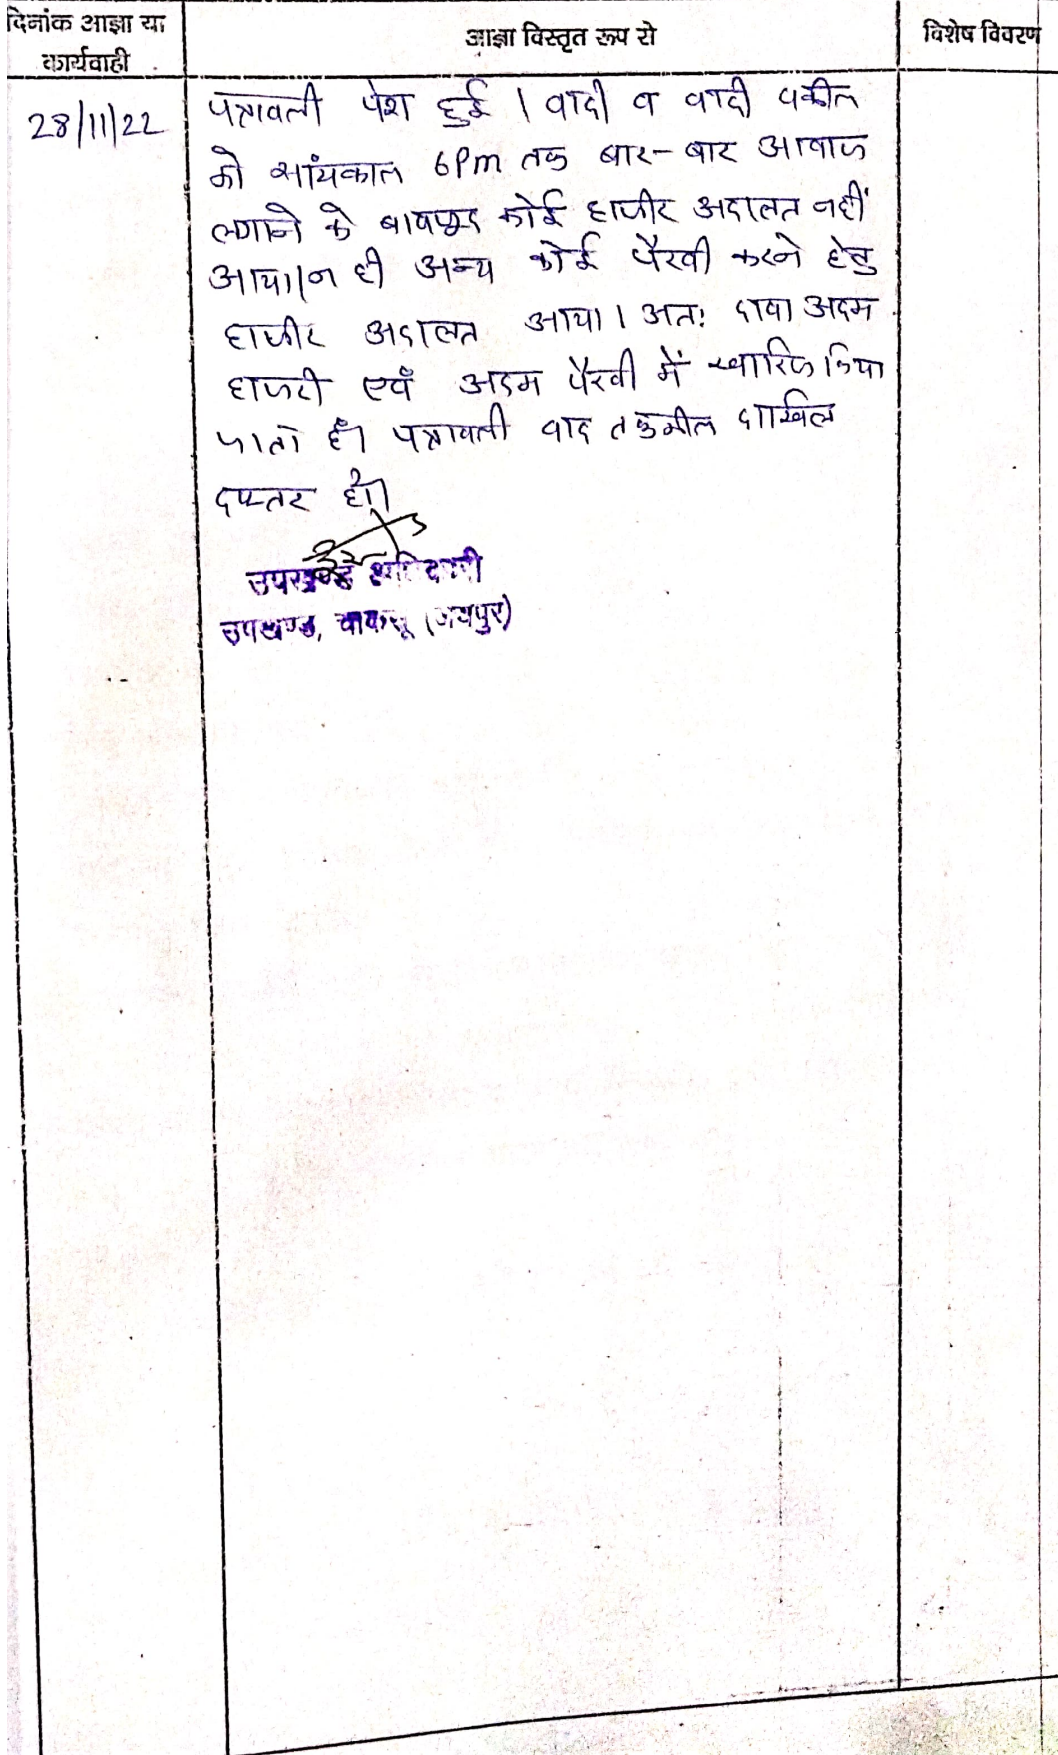 दिनांक आज्ञा या
कार्यवाही
आज्ञा विस्तृत रूप से
विशेष विवरण
28/11/22
पत्रावली पेश हुई । वादी व वादी वकील
को सांयकाल 6Pm तक बार-बार आवाज
लगाने के बावजूद कोई हाजीर अदालत नहीं
आया।न ही अन्य कोई पैरवी करने हेतु
हाजीर अदालत आया। अतः दावा अदम
हाजरी एवं अदम पैरवी में खारिज किया
जाता है। पत्रावली बाद तकमील दाखिल
दफ्तर हो।
उपखण्ड अधिकारी
उपखण्ड, चाकसू (जयपुर)